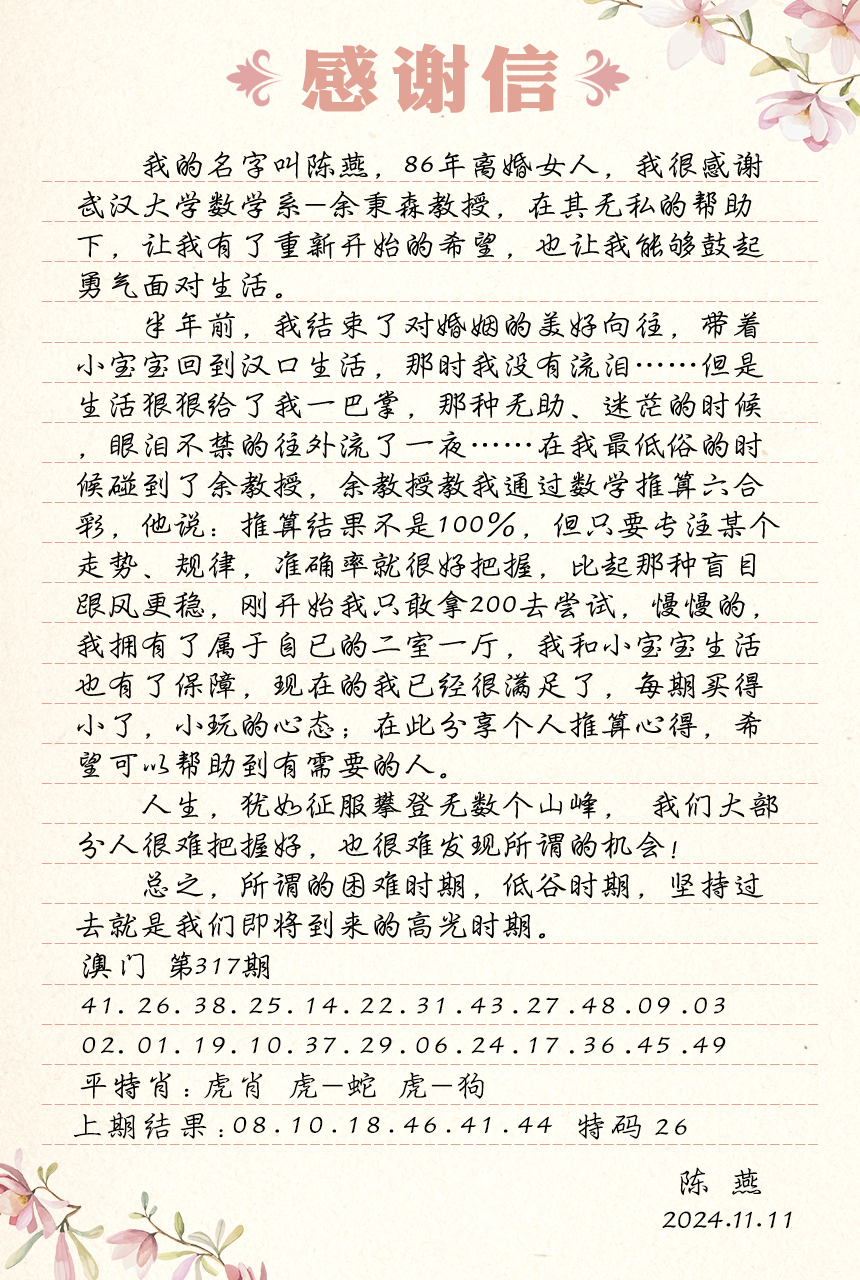 感谢信
我的名字叫陈燕，86年离婚女人，我很感谢
武汉大学数学系—余秉森教授，在其无私的帮助
下，让我有了重新开始的希望，也让我能够鼓起
勇气面对生活。
半年前，我结束了对婚姻的美好向往，带着
小宝宝回到汉口生活，那时我没有流泪……但是
生活狠狠给了我一巴掌，那种无助、迷茫的时候
，眼泪不禁的往外流了一夜……在我最低俗的时
候碰到了余教授，余教授教我通过数学推算六合
彩，他说：推算结果不是100%，但只要专注某个
走势、规律，准确率就很好把握，比起那种盲目
跟风更稳，刚开始我只敢拿200去尝试，慢慢的，
我拥有了属于自已的二室一厅，我和小宝宝生活
也有了保障，现在的我已经很满足了，每期买得
小了，小玩的心态；在此分享个人推算心得，希
望可以帮助到有需要的人。
人生，犹如征服攀登无数个山峰， 我们大部
分人很难把握好，也很难发现所谓的机会！
总之，所谓的困难时期，低谷时期，坚持过
去就是我们即将到来的高光时期。
澳门 第317期
41.26.38.25.14.22.31.43.27.48.09.03
02.01.19.10.37.29.06.24.17.36.45.49
平特肖：虎肖 虎—蛇 虎—狗
上期结果：08.10.18.46.41.44 特码 26
陈 燕
2024.11.11